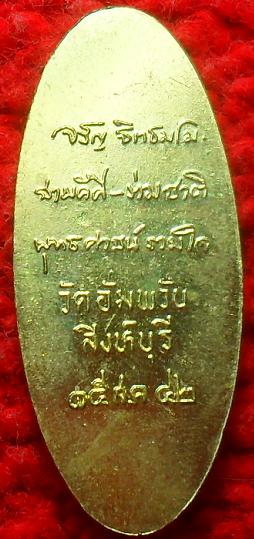 จรัญ ฐิตธมฺโม
สามัคคี-ทำชาติ
พุทธศาสน์ รวมใจ
วัดอัมพวัน
สิงห์บุรี
๑๕ สค ๔๒